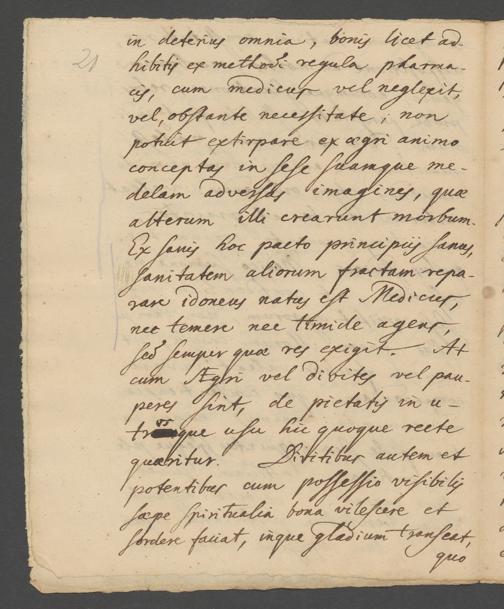 21
in deterius omnia, bonis licet ad-
hibitis ex methodi regula pharma-
cis, cum medicus vel neglexit,
vel, obstante necessitate, non
potuit extirpare ex ægri animo
conceptas in sese suamque me-
delam adversas imagines, quæ
alterum illi crearunt morbum.
Ex sanis hoc pacto principiis sanus,
sanitatem aliorum fractam repa-
rare idoneus natus est Medicus,
nec temere nec timide agens,
sed semper quæ res exigit. At
cum Ægri vel divites vel pau-
peres sint, de pietatis in u-
trosque usu hic quoque recte
quæritur. Divitibus autem et
potentibus cum possessio visibilis
sæpe spiritualia bona vilescere et
sordere faciat, inque gladium transeat,
quo